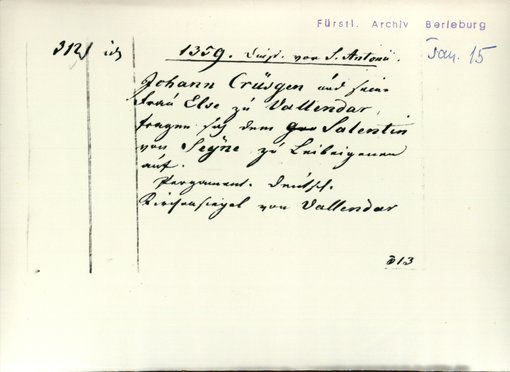 Fürstl. Archiv Berleburg
312) id 1359. Dinst. vor S. Antonii. Jan. 15
Johann Crüsgen und seine
Frau Else zu Vallendar,
tragen sich dem Salentin
von Seyne zu Leibeigenen
auf.
Pergament. Deutsch.
Kirchensiegel von Vallendar
313